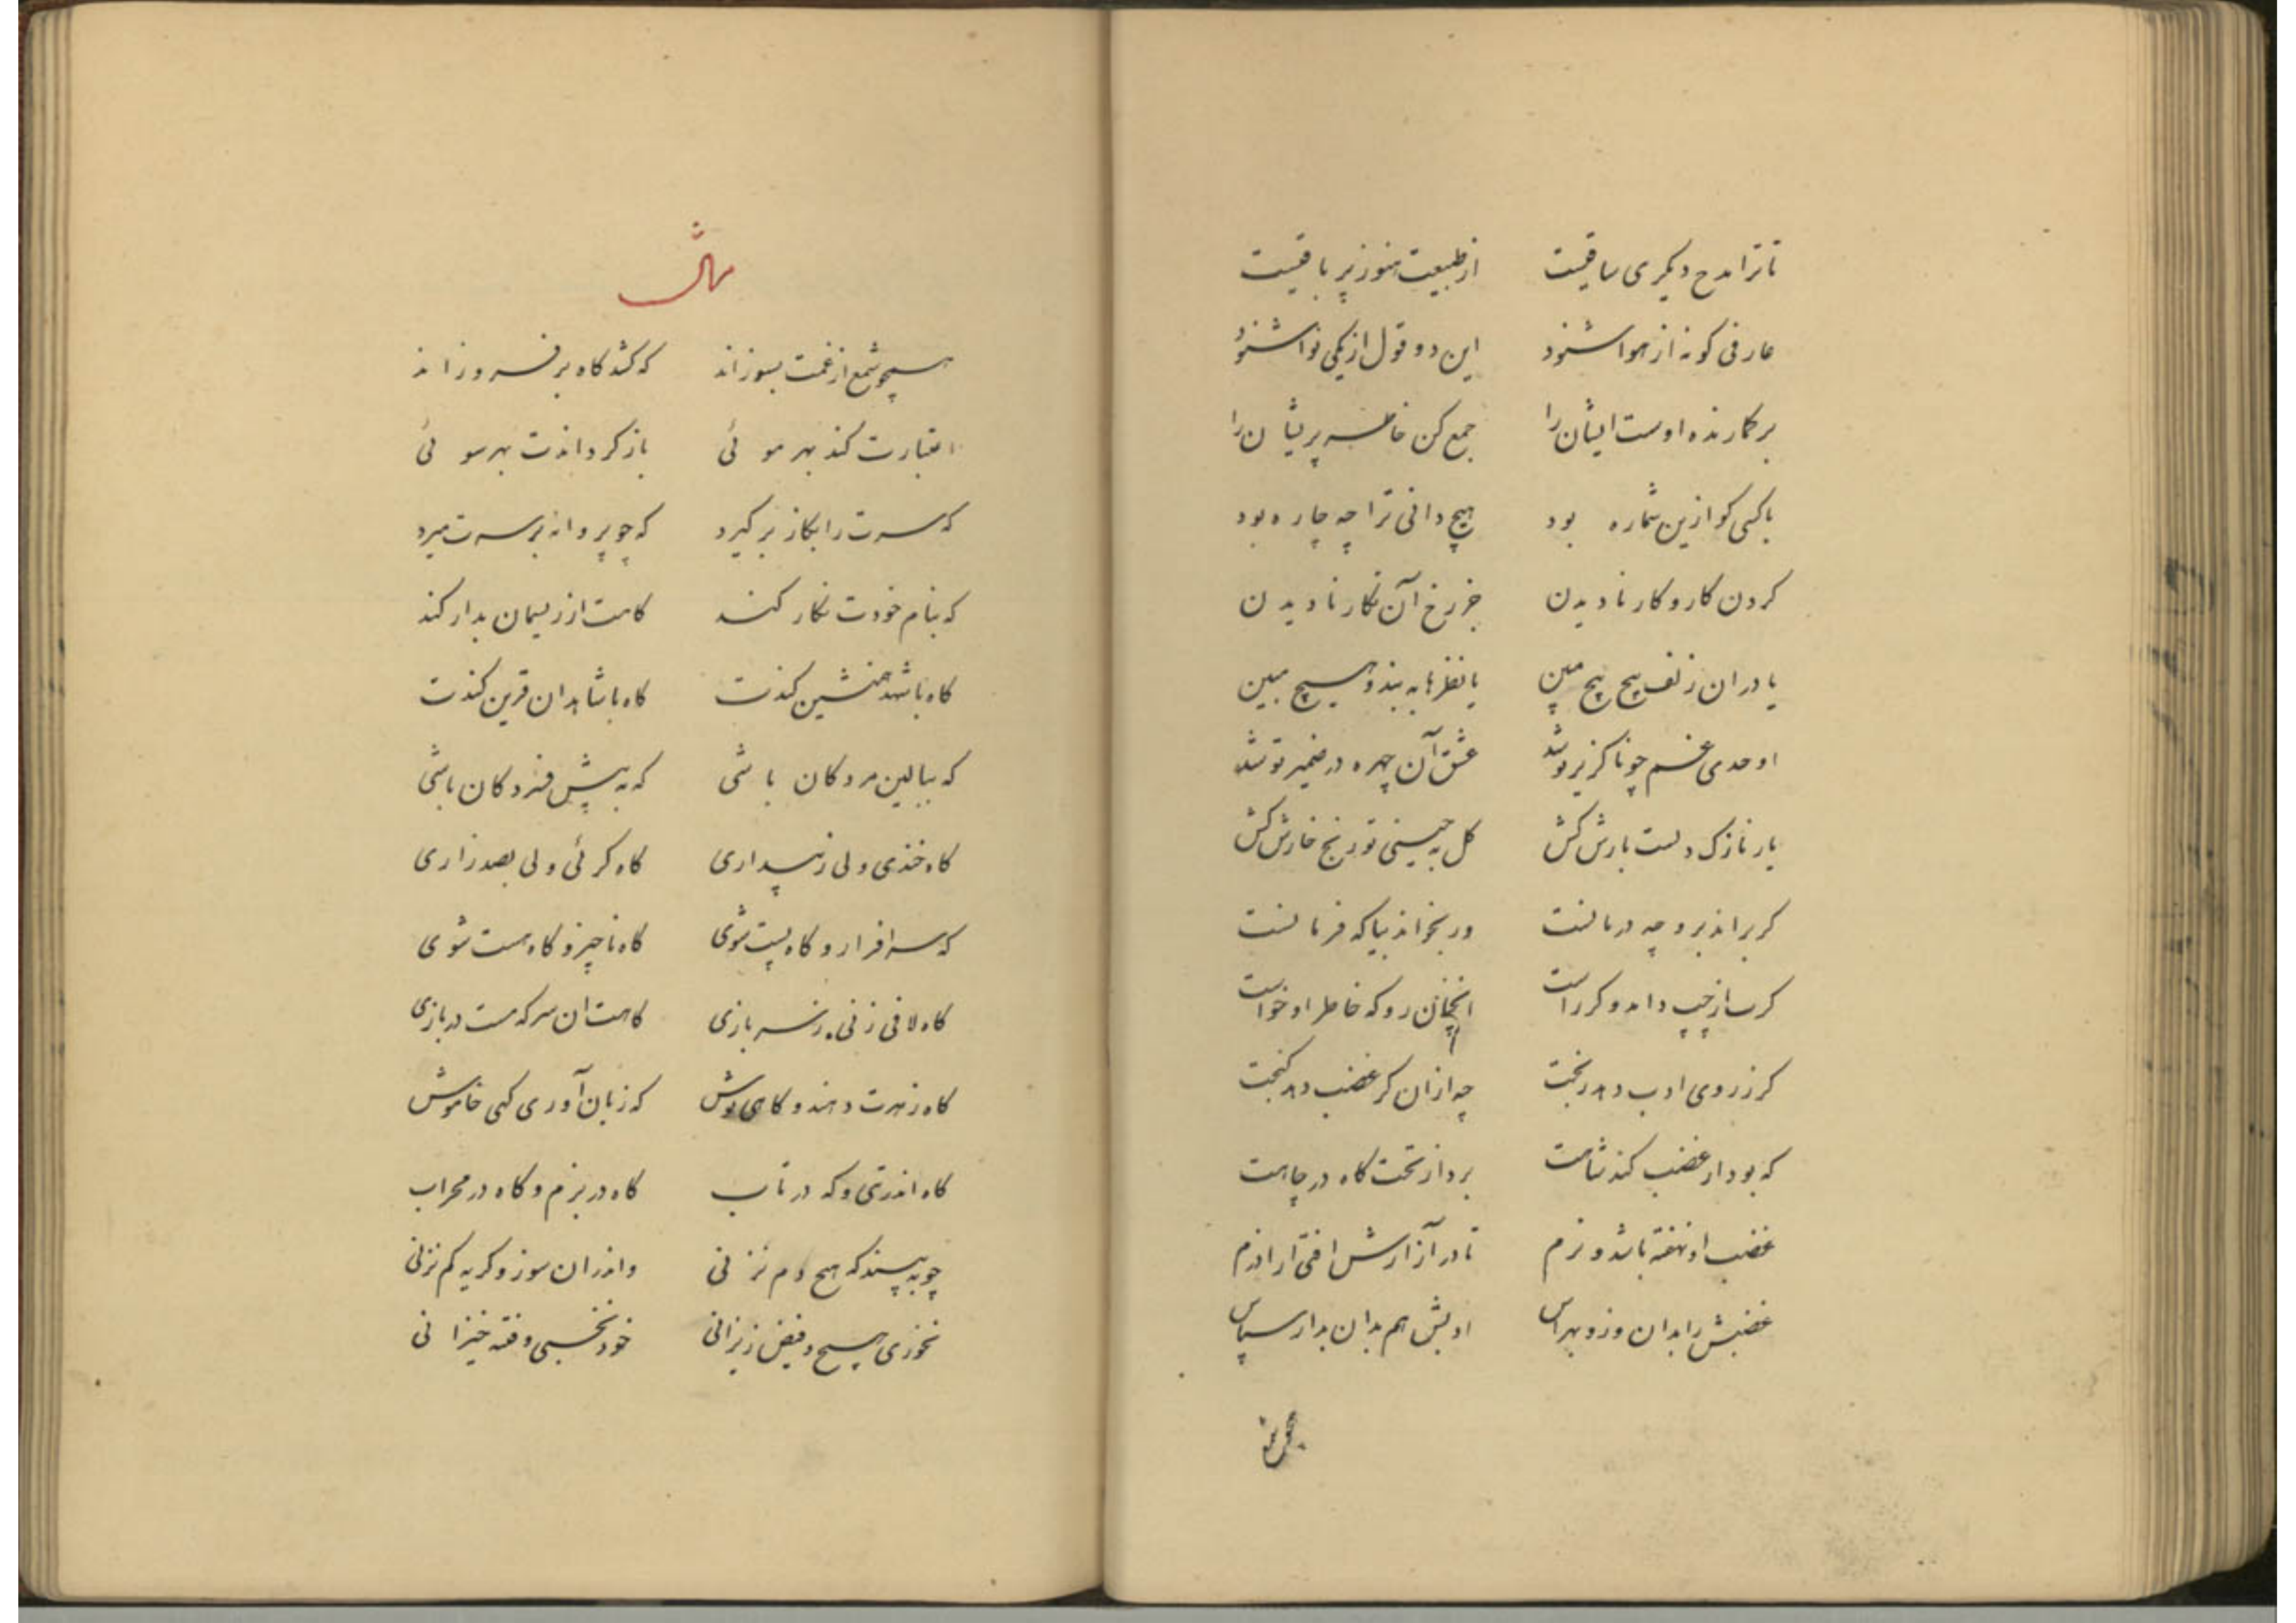 تا ترا مدح دیگری ساقیست از طبیعت هنوز پر باقیست
عارفی کو نه از هوا شنود این دو قول از یکی نوا شنود
بر کمارنده اوست ایشان را جمع کن خاطر پریشان را
با کسی کو ازین شماره بود هیچ دانی ترا چه چاره بود
کردن کار و کار نادیدن جز رخ آن نکار نادیدن
یا دران زلف پیچ پیچ مبین یا نظرها به بند و هیچ مبین
اوحدی غم چو ناکزیر تو شد عشق آن چهره در ضمیر تو شد
یار نازک دلست بارش کش کل بچینی تو رنج خارش کش
کر براند برو چه درمانست ور بخواند بیا که فرمانست
کرت از چپ داند و کر راست انچنان رو که خاطر او خواست
کر ز روی ادب دهد رختت چه ازان کر غضب دهد کنجت
که بود از غضب کند شاهت برد از تختگاه در چاهت
غضب او نهفته باشد و نرم تا در آزارش افتی از آزرم
غضبش را بدان وزو بهراس ادبش هم بدان بدار سپاس
همچو شمع
مثال
همچو شمع از غمت بسوزاند که کشد کاه بر فروزاند
اعتبارت کند بهر موئی باز کرداندت بهر سوئی
که سرت را بکاز برکیرد که چو پروانه بر سرت میرد
که بنام خودت نکار کند کاهت از ریسمان بدار کند
کاه با شهد همنشین کندت کاه با شاهدان قرین کندت
که ببالین مردکان باشی که به پیش فسردکان باشی
کاه خندی ولی ز پنداری کاه کرئی ولی بصد زاری
که سرافراز و کاه پست شوی کاه ناچیز و کاه هست شوی
کاه لافی زنی ز سربازی کاهت ان سر که هست در بازی
کاه زهرت دهند و کاهی نوش که زبان آوری کهی خاموش
کاه اندر تب و که در تاب کاه در بزم و کاه در محراب
چو به بیند که هیچ دم نزنی واندران سوز و کریه کم نزنی
نخوری هیچ و فیض ریزانی خود نخسبی و فتنه خیزانی